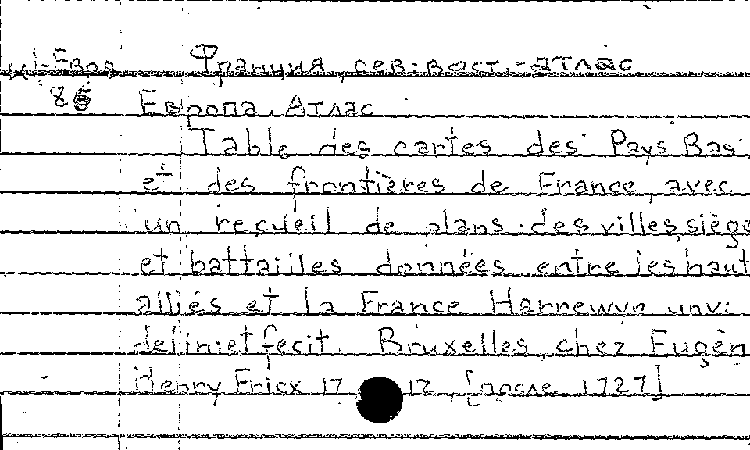 Франция, сев:-вост.-атлас
Европа. Атлас
Table des cartes des Pays Bas
et des frontières de France, avec
un reçueil de plans des villes, siége
et battailles données entre les haut
alliés et la France Harrewyn
delin: et fecit. Bruxelles, chez Eugèn
Henry Fricx 17 12, [после 1727]